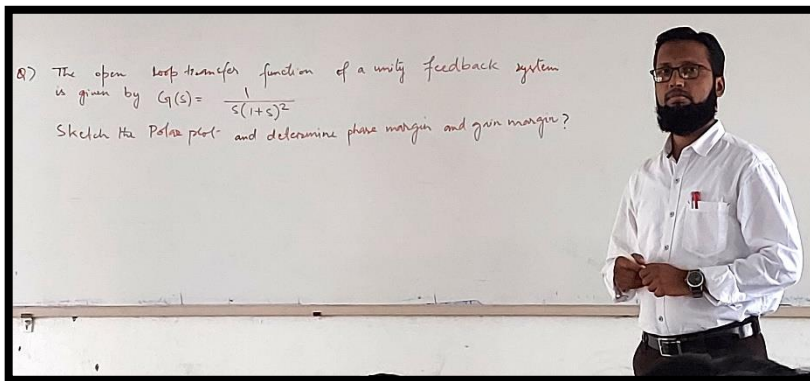 Q) The open loop transfer function of a unity feedback system
is given by G(s) = 1 / s(1+s)²
Sketch the Polar plot and determine phase margin and gain margin?